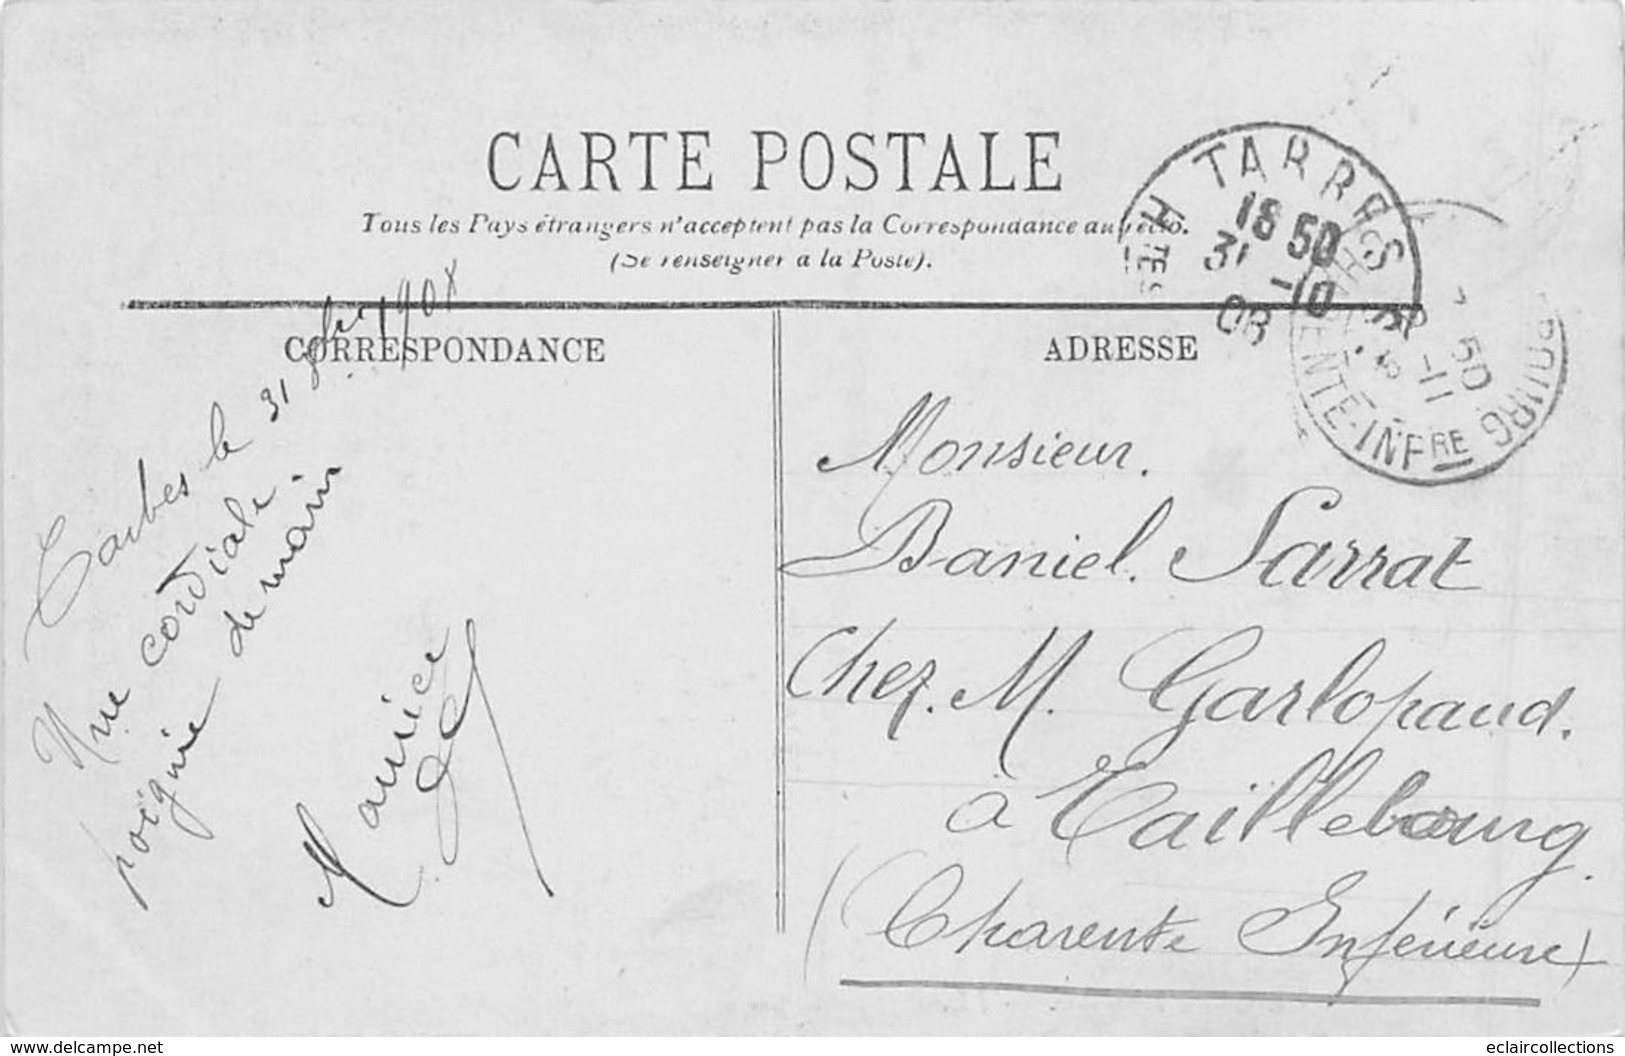 CARTE POSTALE
Tous les Pays étrangers n'acceptent pas la Correspondance au recto.
(Se renseigner à la Poste).
CORRESPONDANCE
ADRESSE
TARBES
18 50
31 -10
08
HTES
50
-11
BOURG
ENTE-INFRE
Tarbes le 31 8bre 1908
Une cordiale
poignée de main
Maurice
Monsieur.
Daniel. Sarrat
Chez. M. Garlopaud.
à Taillebourg.
(Charente Inférieure)
www.delcampe.net
eclaircollections